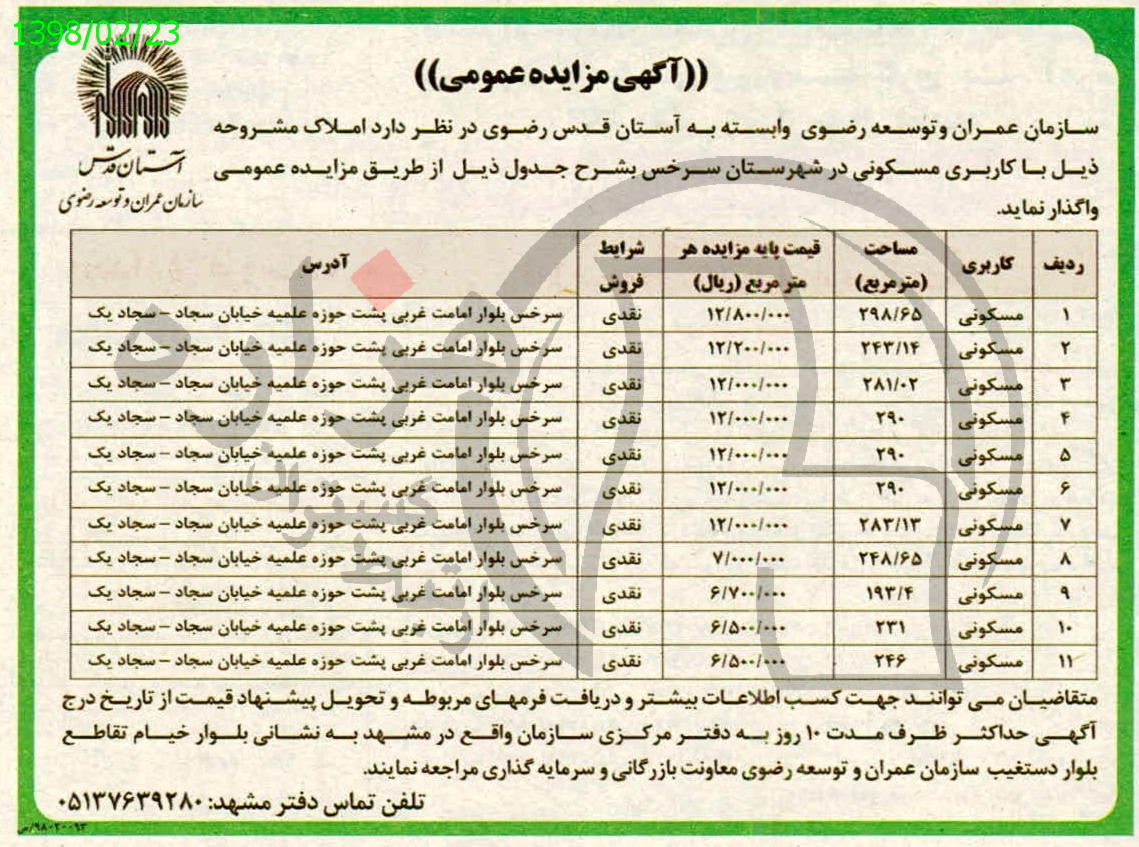 1398/02/23
((آگهی مزایده عمومی))
آستان قدس
سازمان عمران و توسعه رضوی
سازمان عمران وتوسعه رضوی وابسته به آستان قدس رضوی در نظر دارد املاک مشروحه
ذیل با کاربری مسکونی در شهرستان سرخس بشرح جدول ذیل از طریق مزایده عمومی
واگذار نماید.
ردیف کاربری مساحت (مترمربع) قیمت پایه مزایده هر متر مربع (ریال) شرایط فروش آدرس
۱ مسکونی ۲۹۸/۶۵ ۱۲/۸۰۰/۰۰۰ نقدی سرخس بلوار امامت غربی پشت حوزه علمیه خیابان سجاد – سجاد یک
۲ مسکونی ۲۴۳/۱۴ ۱۲/۲۰۰/۰۰۰ نقدی سرخس بلوار امامت غربی پشت حوزه علمیه خیابان سجاد – سجاد یک
۳ مسکونی ۲۸۱/۰۲ ۱۲/۰۰۰/۰۰۰ نقدی سرخس بلوار امامت غربی پشت حوزه علمیه خیابان سجاد – سجاد یک
۴ مسکونی ۲۹۰ ۱۲/۰۰۰/۰۰۰ نقدی سرخس بلوار امامت غربی پشت حوزه علمیه خیابان سجاد – سجاد یک
۵ مسکونی ۲۹۰ ۱۲/۰۰۰/۰۰۰ نقدی سرخس بلوار امامت غربی پشت حوزه علمیه خیابان سجاد – سجاد یک
۶ مسکونی ۲۹۰ ۱۲/۰۰۰/۰۰۰ نقدی سرخس بلوار امامت غربی پشت حوزه علمیه خیابان سجاد – سجاد یک
۷ مسکونی ۲۸۳/۱۳ ۱۲/۰۰۰/۰۰۰ نقدی سرخس بلوار امامت غربی پشت حوزه علمیه خیابان سجاد – سجاد یک
۸ مسکونی ۲۴۸/۶۵ ۷/۰۰۰/۰۰۰ نقدی سرخس بلوار امامت غربی پشت حوزه علمیه خیابان سجاد – سجاد یک
۹ مسکونی ۱۹۳/۴ ۶/۷۰۰/۰۰۰ نقدی سرخس بلوار امامت غربی پشت حوزه علمیه خیابان سجاد – سجاد یک
۱۰ مسکونی ۲۳۱ ۶/۵۰۰/۰۰۰ نقدی سرخس بلوار امامت غربی پشت حوزه علمیه خیابان سجاد – سجاد یک
۱۱ مسکونی ۲۴۶ ۶/۵۰۰/۰۰۰ نقدی سرخس بلوار امامت غربی پشت حوزه علمیه خیابان سجاد – سجاد یک
متقاضیان می توانند جهت کسب اطلاعات بیشتر و دریافت فرمهای مربوطه و تحویل پیشنهاد قیمت از تاریخ درج
آگهی حداکثر ظرف مدت ۱۰ روز به دفتر مرکزی سازمان واقع در مشهد به نشانی بلوار خیام تقاطع
بلوار دستغیب سازمان عمران و توسعه رضوی معاونت بازرگانی و سرمایه گذاری مراجعه نمایند.
تلفن تماس دفتر مشهد: ۰۵۱۳۷۶۳۹۲۸۰
۹۸۰۲۰۰۹۳/ص